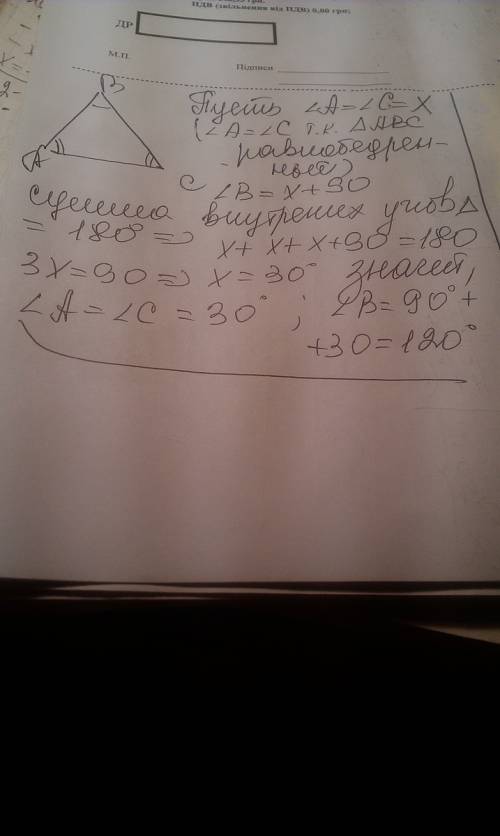 ПДВ (звільнення від ПДВ) 0,00 грн;
ДР
М.П.
Підписи
B
A
C
Пусть ∠A=∠C=X
(∠A=∠C т.к. △ABC
-равнобедрен-
ный)
∠B=X+90
сумма внутрених углов △
= 180° => X+X+X+90=180
3X=90 => X=30° значит,
∠A=∠C=30° ; ∠B=90°+
+30=120°